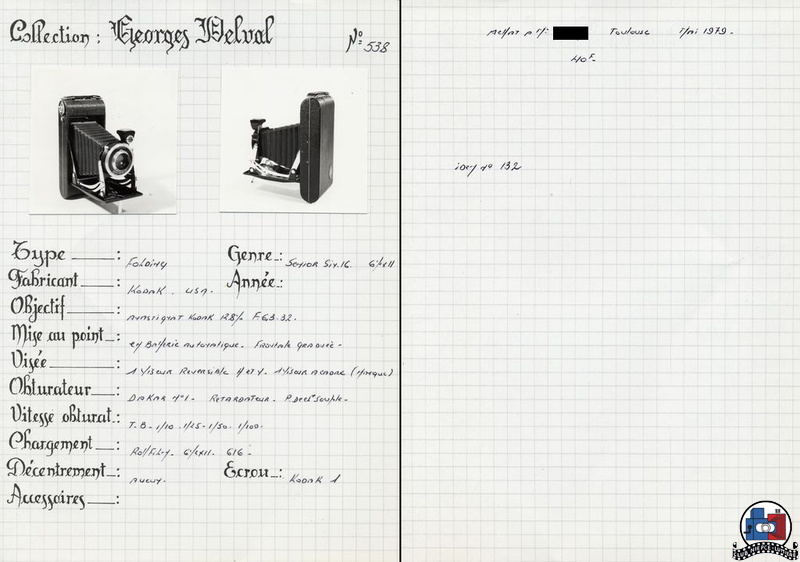 Collection : Georges Delval
N° 538
Type : Folding
Genre : Senior Six.16. 6½x11
Fabricant : Kodak . USA.
Année :
Objectif : Anastigmat Kodak 128% F6.3-32.
Mise au point : en Batterie automatique. Frontale graduée -
Visée : 1 Viseur Reversible H et V. 1 Viseur à cadre (manque)
Obturateur : DAKAR n°1 - Retardateur. P. decl souple.
Vitesse obturat. : T.B. 1/10 . 1/25 - 1/50 . 1/100.
Chargement : Roll Film. 6½x11. 616 -
Décentrement : aucun.
Ecrou : Kodak 1
Accessoires :
Achat à Mr: Toulouse Mai 1979 -
40F-
iden n° 132